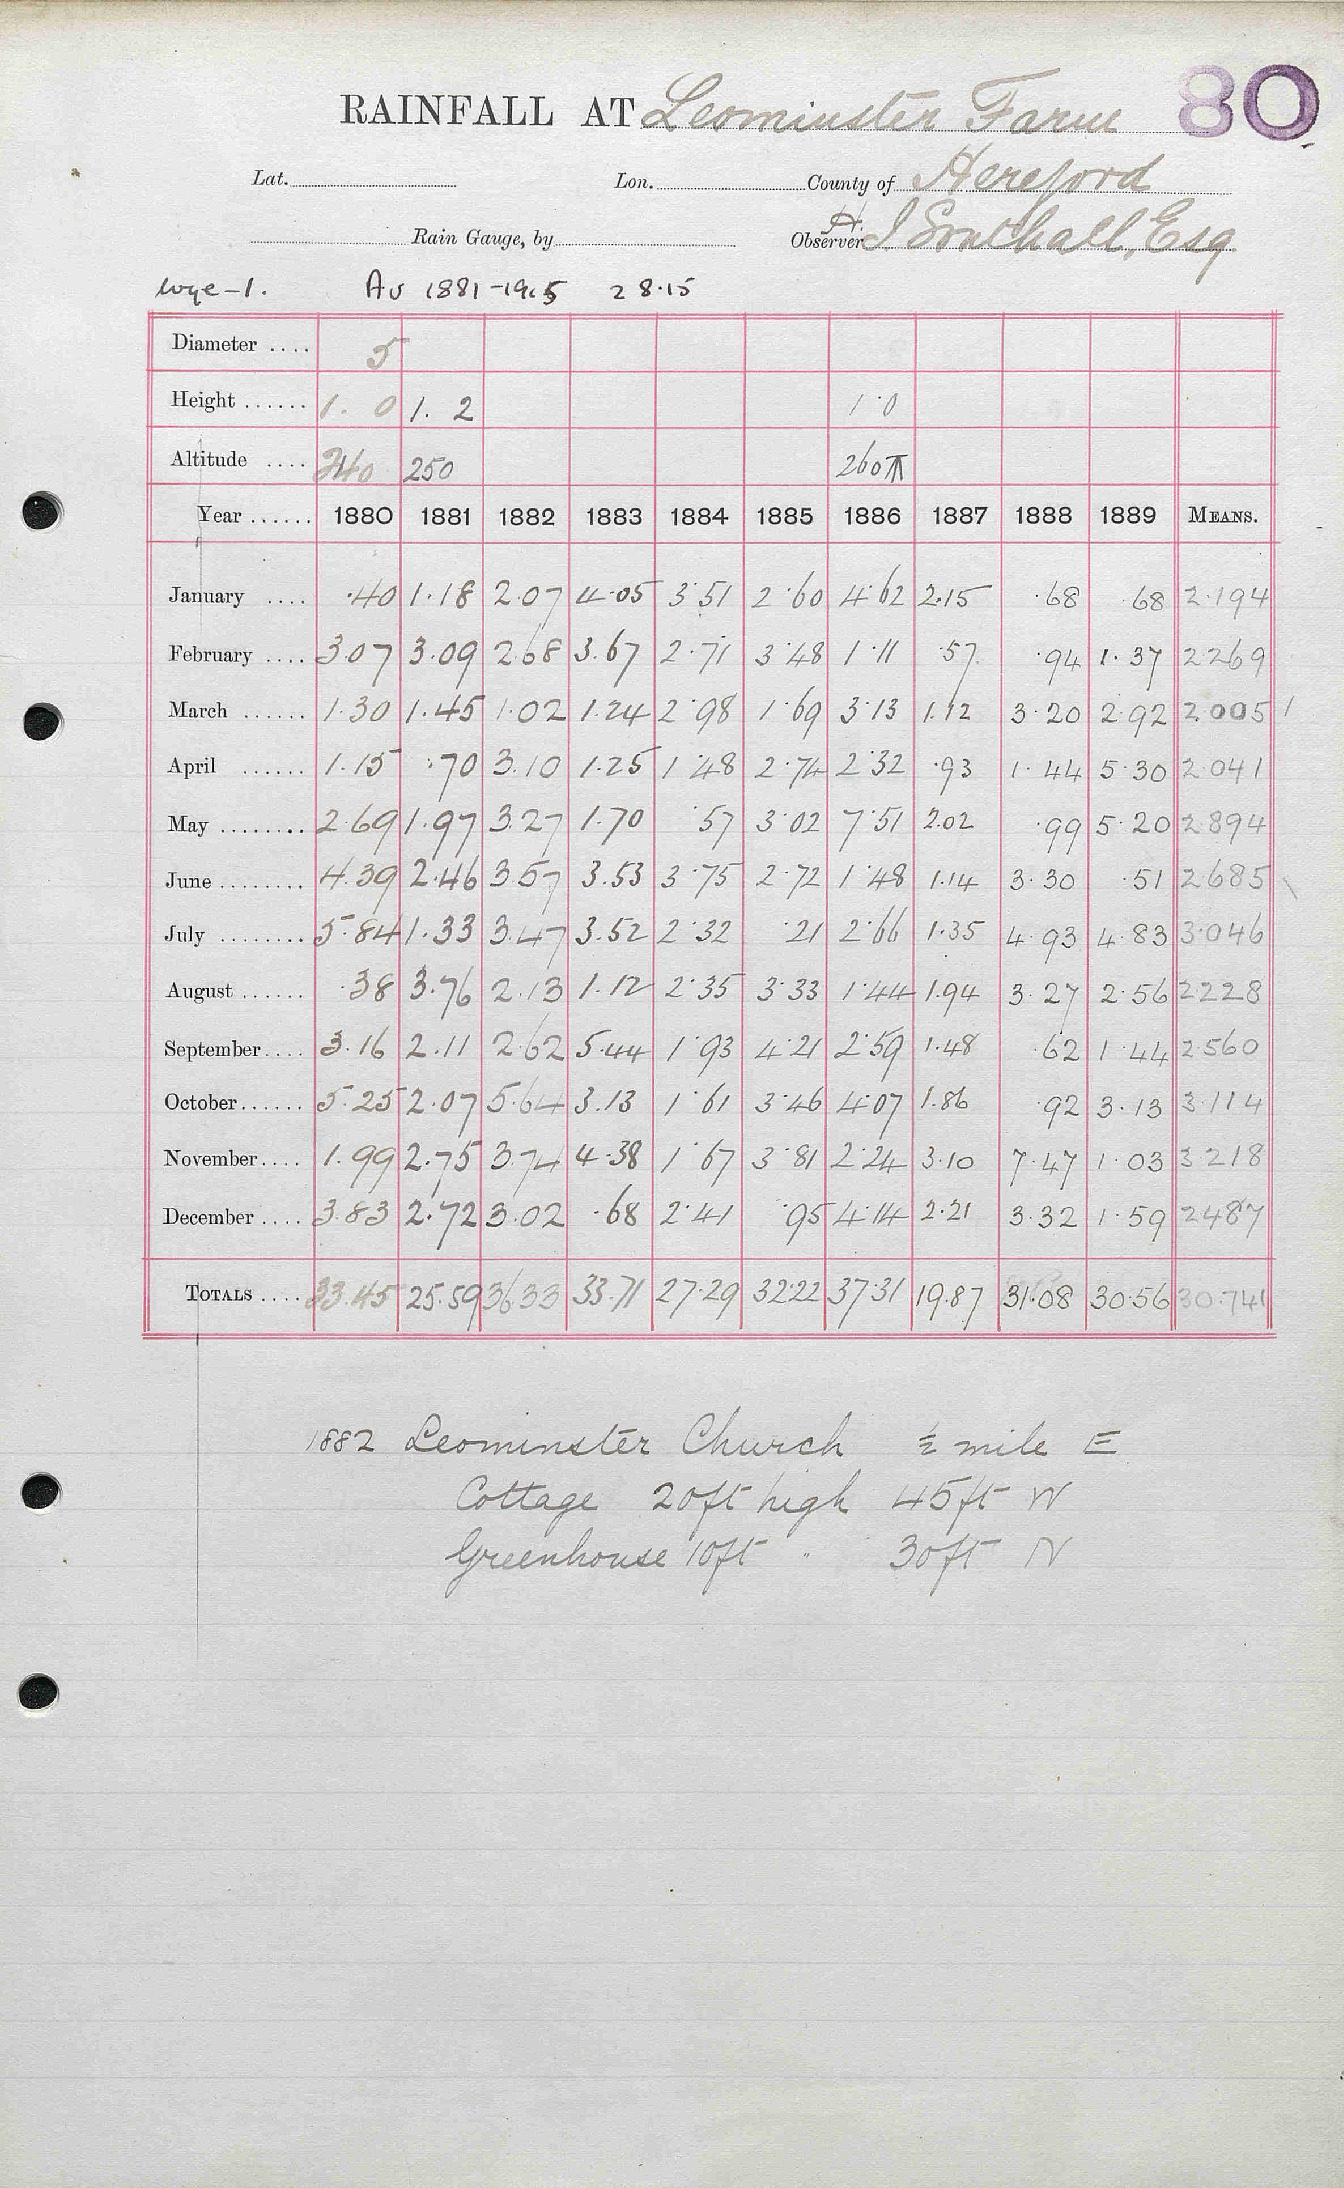 80
RAINFALL AT Leominster Farm
Lat. Lon. County of Hereford
Rain Gauge, by Observer H. J Southall, Esq
Wye-1. Av 1881-1915 28.15
Diameter .... 5
Height ...... 1. 0 1. 2 1.0
Altitude .... 240 250 260
Year ...... 1880 1881 1882 1883 1884 1885 1886 1887 1888 1889 MEANS.
January .... .40 1.18 2.07 4.05 3.51 2.60 4.62 2.15 .68 .68 2.194
February .... 3.07 3.09 2.68 3.67 2.71 3.48 1.11 .57 .94 1.37 2.269
March ...... 1.30 1.45 1.02 1.24 2.98 1.69 3.13 1.12 3.20 2.92 2.005 1
April ...... 1.15 .70 3.10 1.25 1.48 2.74 2.32 .93 1.44 5.30 2.041
May ........ 2.69 1.97 3.27 1.70 .57 3.02 7.51 2.02 .99 5.20 2.894
June ........ 4.39 2.46 3.57 3.53 3.75 2.72 1.48 1.14 3.30 .51 2.685
July ........ 5.84 1.33 3.47 3.52 2.32 .21 2.66 1.35 4.93 4.83 3.046
August ...... .38 3.76 2.13 1.12 2.35 3.33 1.44 1.94 3.27 2.56 2.228
September.... 3.16 2.11 2.62 5.44 1.93 4.21 2.59 1.48 .62 1.44 2.560
October...... 5.25 2.07 5.64 3.13 1.61 3.46 4.07 1.86 .92 3.13 3.114
November.... 1.99 2.75 3.74 4.38 1.67 3.81 2.24 3.10 7.47 1.03 3.218
December .... 3.83 2.72 3.02 .68 2.41 .95 4.14 2.21 3.32 1.59 2.487
TOTALS .... 33.45 25.59 36.33 33.71 27.29 32.22 37.31 19.87 31.08 30.56 30.741
1882 Leominster Church ½ mile E
Cottage 20ft high 45ft W
Greenhouse 10ft " 30ft N